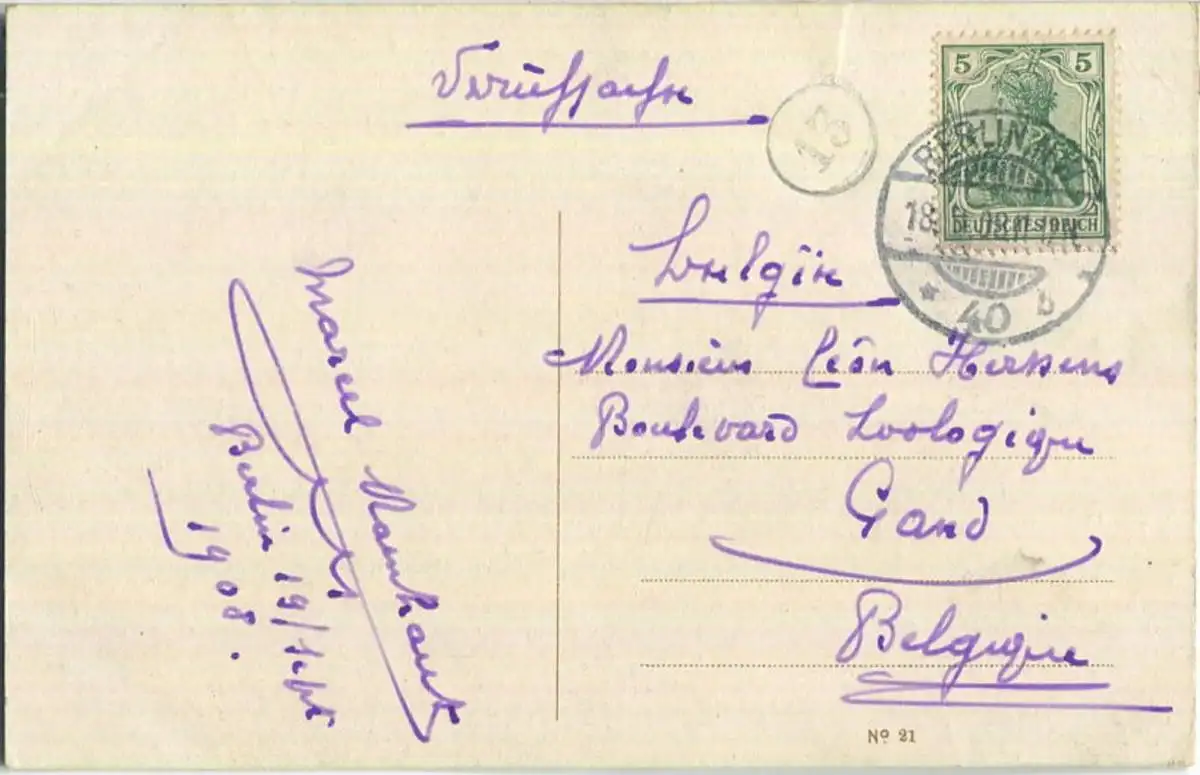 5 5
DEUTSCHES REICH
BERLIN
40 b
13
Monsieur Léon Herkens
Boulevard Zoologique
Gand
Belgique
Marcel
Berlin 19/Sept
1908.
No 21